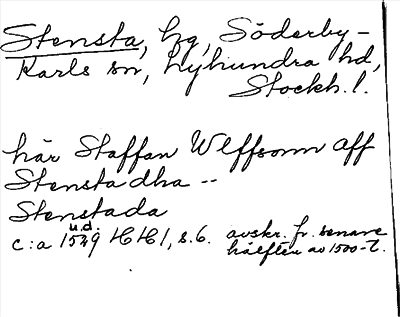 Stensta, hg, Söderby-
Karls sn, Lyhundra hd,
Stockh. l.
här Staffan Wlffsonn aff
Stensta dha --
Stenstada
u.d.
c:a 1549 HH 1, s. 6. avskr. fr. senare
hälften av 1500-t.